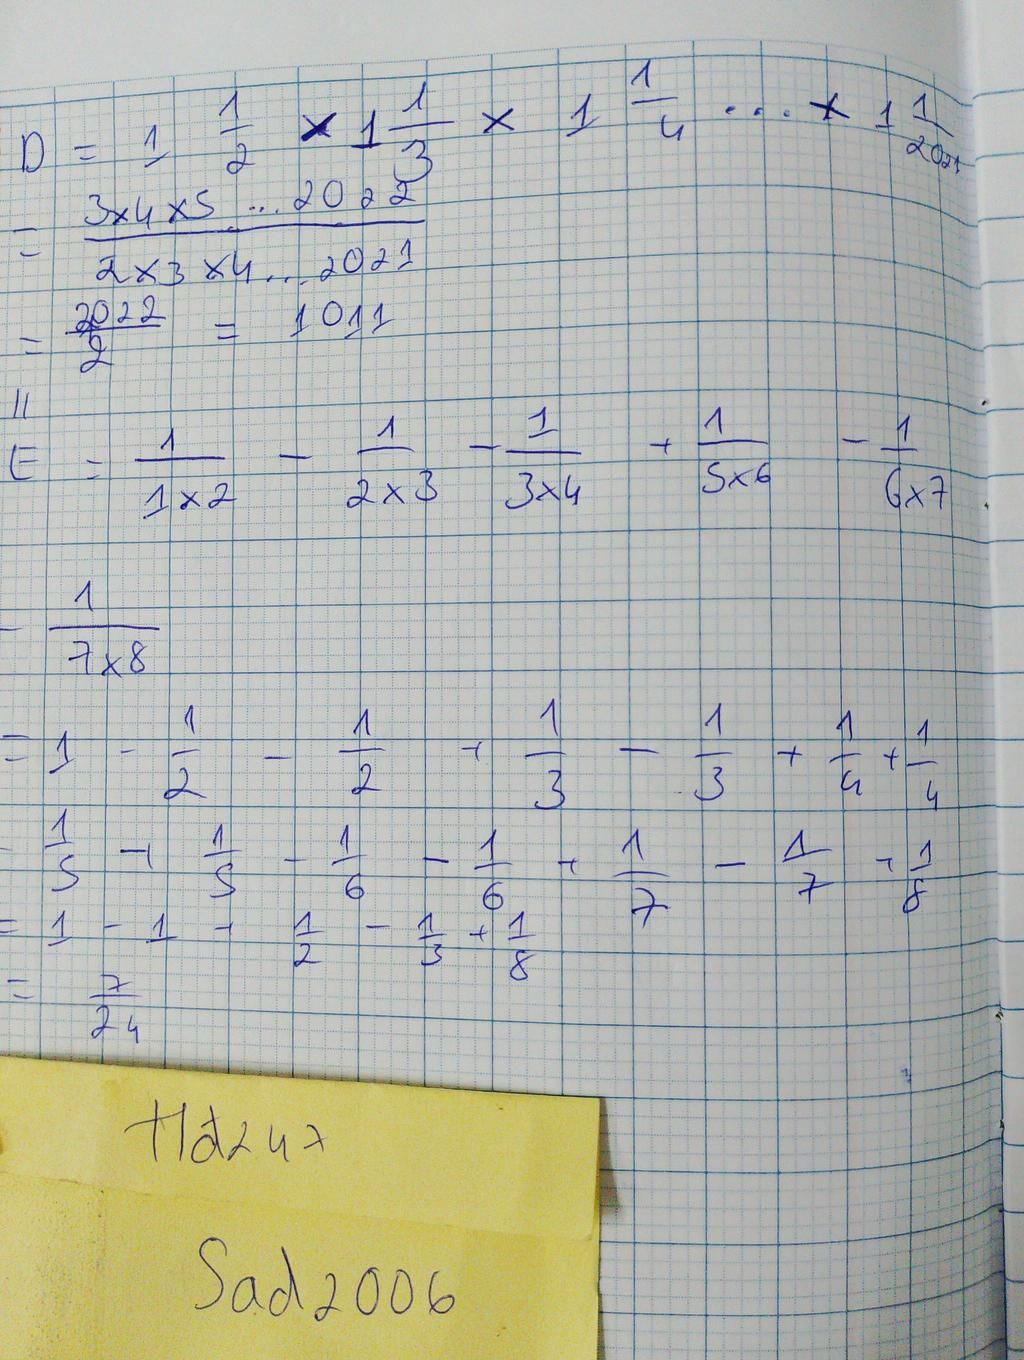 D = 1 1/2 × 1 1/3 × 1 1/4 .... × 1 1/2021
= 3×4×5 ... 2022 / 2×3×4... 2021
= 2022/2 = 1011
E = 1/1×2 - 1/2×3 - 1/3×4 + 1/5×6 - 1/6×7
- 1/7×8
= 1 - 1/2 - 1/2 + 1/3 - 1/3 + 1/4 + 1/4
- 1/5 + 1/5 - 1/6 - 1/6 + 1/7 - 1/7 + 1/8
= 1 - 1 + 1/2 - 1/3 + 1/8
= 7/24
Hd247
Sad2006